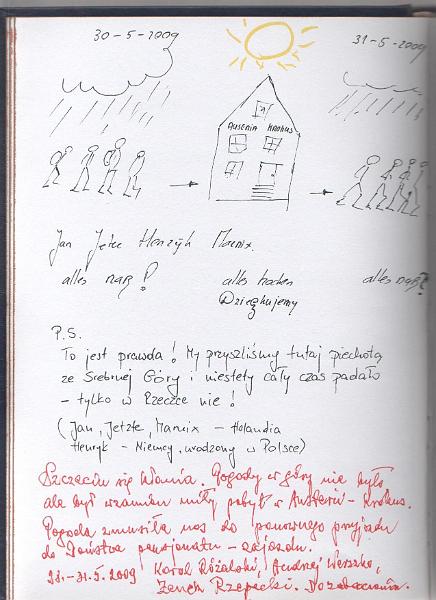 30-5-2009
31-5-2009
AUSERIA KROKUS
Jan Jetze Henryk Marnix.
alles naß!
alles trocken
Dziękujemy
alles naß!
P.S.
To jest prawda! My przyszliśmy tutaj piechotą
ze Srebrnej Góry i niestety cały czas padało
– tylko w Rzeczce nie!
(Jan, Jetzte, Marnix – Holandia
Henryk – Niemcy, urodzony w Polsce)
Szczecin się kłania. Pogody w góry nie było
ale był wzamian miły pobyt w Austerii – Krokus.
Pogoda zmusiła nas do ponownego przyjazdu
do Państwa pensjonatu – zajazdu.
28.-31.5.2009 Karol Różalski, Andrzej Werszko,
Zench Rzepecki. Pozdrawiamy.